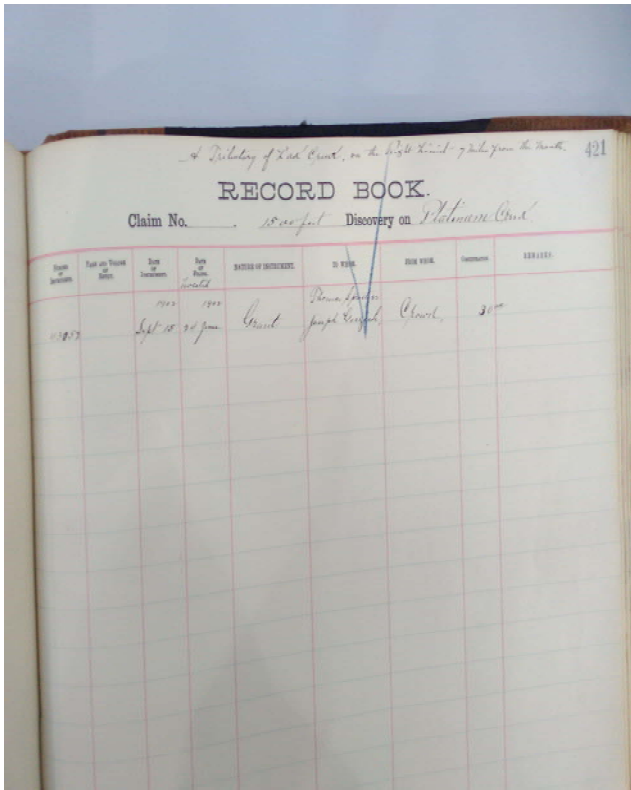 A Tributary of Creek, on the Right Limit - 7 Miles from the Mouth. 421
RECORD BOOK.
Claim No. 1500 feet Discovery on Platinum Creek
NUMBER OF INSTRUMENT. PAGE AND VOLUME OF ENTRY. DATE OF INSTRUMENT. DATE OF FILING. NATURE OF INSTRUMENT. TO WHOM. FROM WHOM. CONSIDERATION. REMARKS.
Located
1902 1902 Thomas
Sept 15 24 June Grant Joseph Crown, 30 00